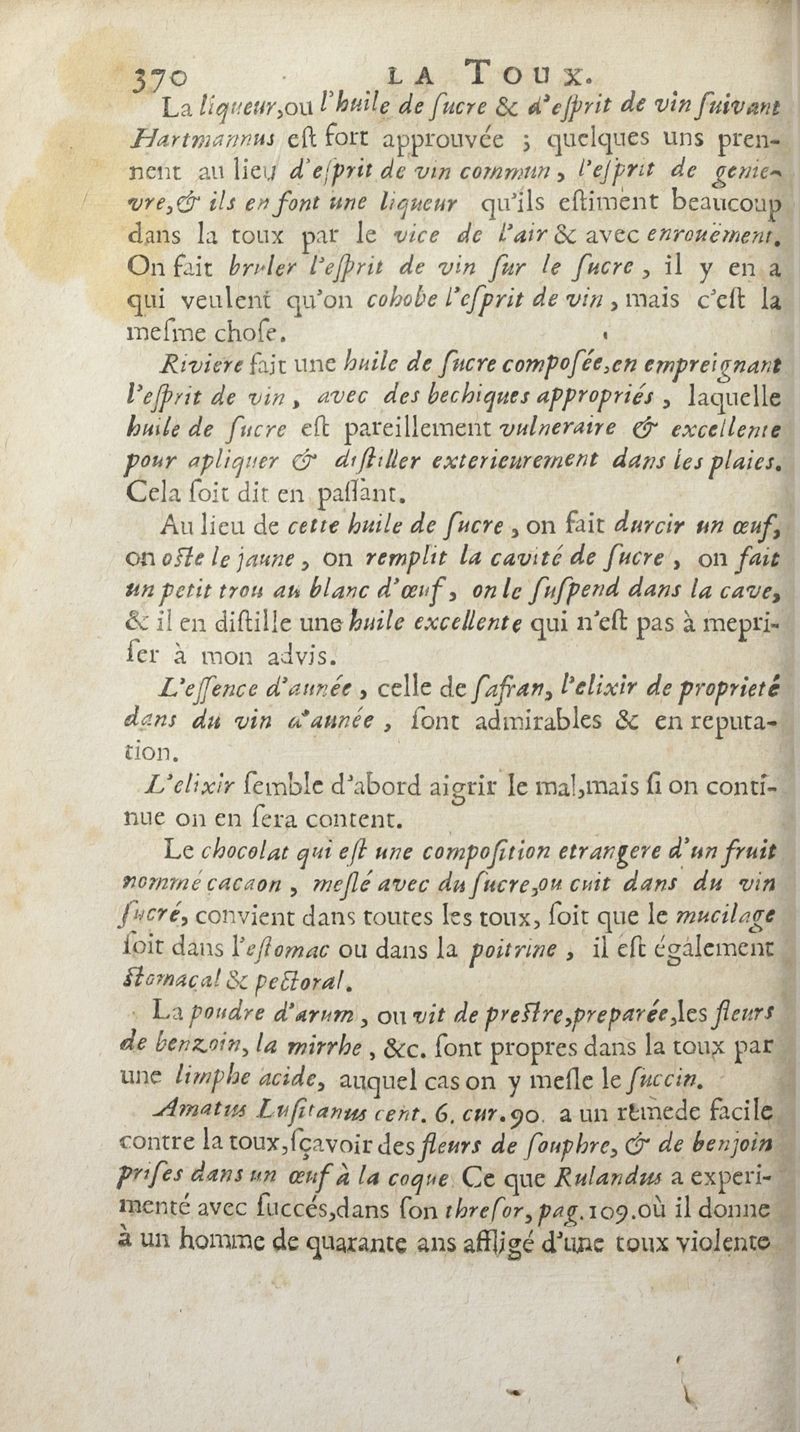 370 LA TOUX.
La liqueur,ou l'huile de ſucre & d'eſprit de vin ſuivant
Hartmannus eſt fort approuvée ; quelques uns pren-
nent au lieu d'eſprit de vin commun, l'eſprit de genie-
vre,& ils en font une liqueur qu'ils eſtiment beaucoup
dans la toux par le vice de l'air & avec enrouëment.
On fait bruler l'eſprit de vin ſur le ſucre, il y en a
qui veulent qu'on cohobe l'eſprit de vin, mais c'eſt la
meſme choſe.
Riviere fait une huile de ſucre compoſée,en empreignant
l'eſprit de vin, avec des bechiques appropriés, laquelle
huile de ſucre eſt pareillement vulneraire & excellente
pour apliquer & diſtiller exterieurement dans les plaies.
Cela ſoit dit en paſſant.
Au lieu de cette huile de ſucre, on fait durcir un œuf,
on oſte le jaune, on remplit la cavité de ſucre, on fait
un petit trou au blanc d'œuf, on le ſuſpend dans la cave,
& il en diſtille une huile excellente qui n'eſt pas à mepri-
ſer à mon advis.
L'eſſence d'aunée, celle de ſafran, l'elixir de proprieté
dans du vin d'aunée, ſont admirables & en reputa-
tion.
L'elixir ſemble d'abord aigrir le mal,mais ſi on conti-
nue on en ſera content.
Le chocolat qui eſt une compoſition etrangere d'un fruit
nommé cacaon, meſlé avec du ſucre,ou cuit dans du vin
ſucré, convient dans toutes les toux, ſoit que le mucilage
ſoit dans l'eſtomac ou dans la poitrine, il eſt également
ſtomacal & pectoral.
La poudre d'arum, ou vit de preſtre,preparée,les fleurs
de benzoin, la mirrhe, &c. ſont propres dans la toux par
une limphe acide, auquel cas on y meſle le ſuccin.
Amatus Luſitanus cent. 6. cur.90. a un remede facile
contre la toux,ſçavoir des fleurs de ſouphre, & de benjoin
priſes dans un œuf à la coque Ce que Rulandus a experi-
menté avec ſuccés,dans ſon threſor, pag.109.où il donne
à un homme de quarante ans affligé d'une toux violente